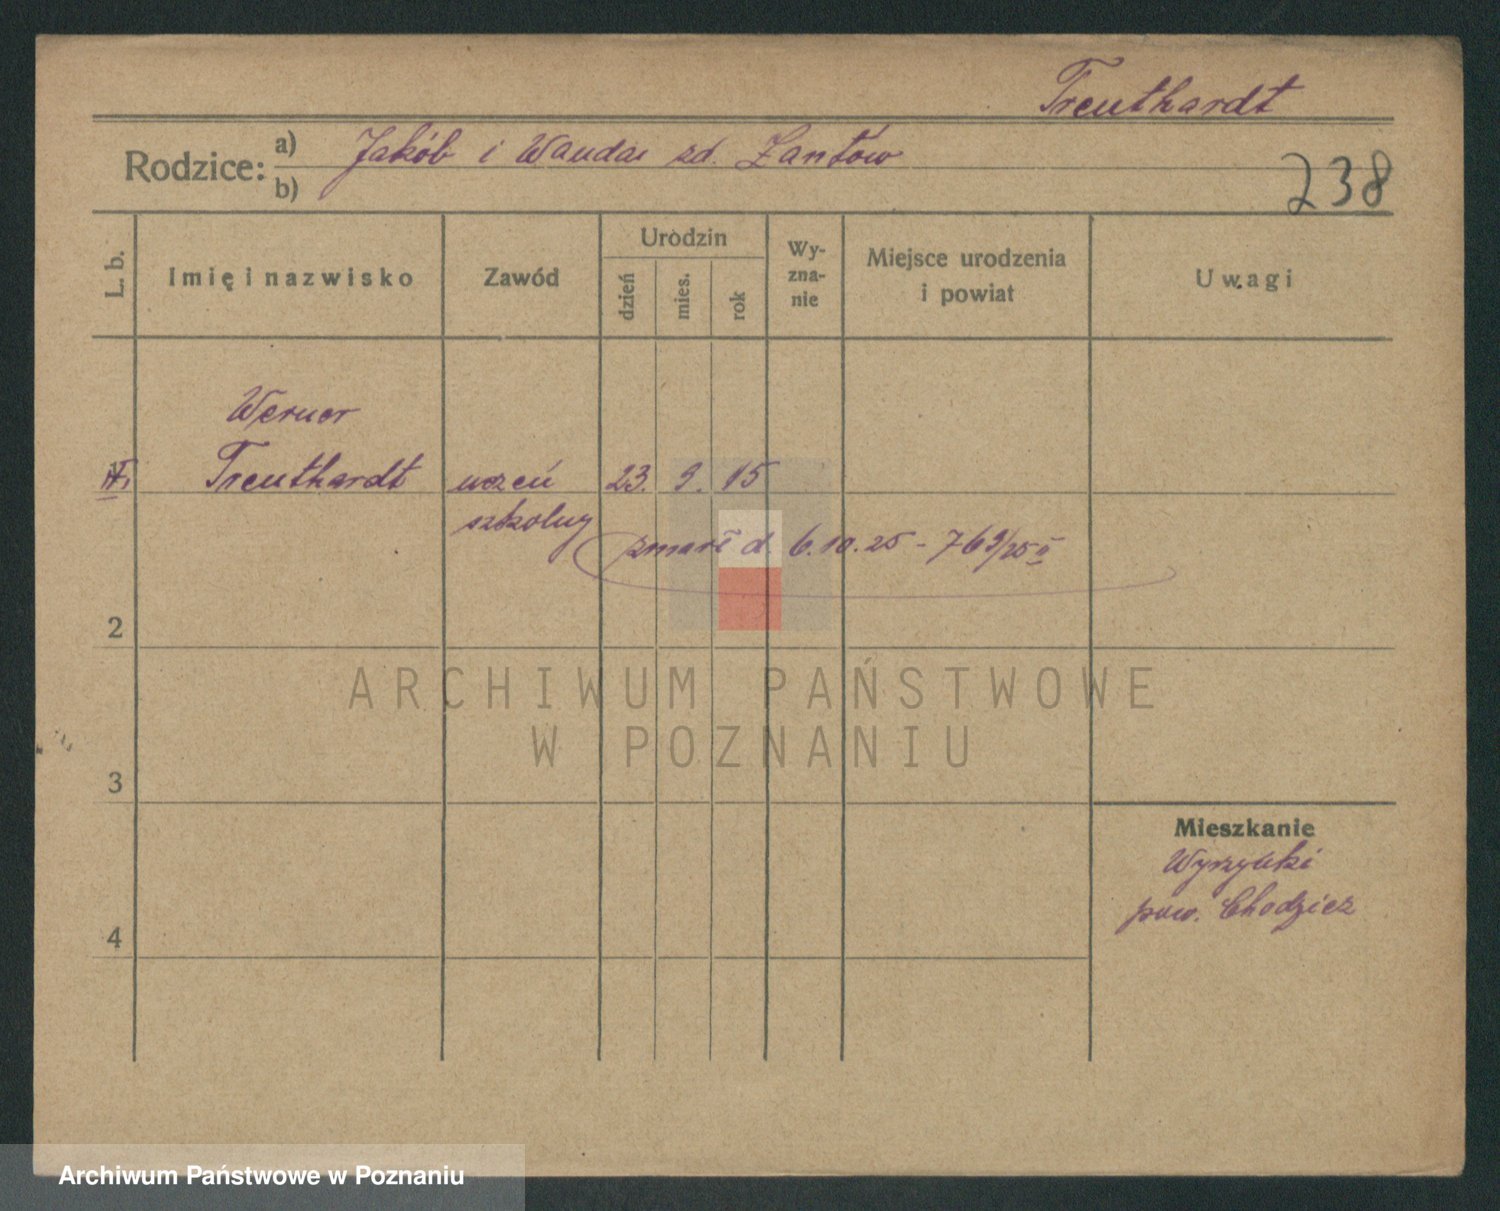 Treuthardt
Rodzice: a) Jakób i Wanda zd. Zantów
b)
238
L. b.
Imię i nazwisko
Zawód
Urodzin
dzień
mies.
rok
Wy-
zna-
nie
Miejsce urodzenia
i powiat
Uwagi
Werner
Treuthardt uczeń 23. 9. 15
szkolny
zmarł d. 6.10.25 - 769/25 II
2
3
4
Mieszkanie
Wyszynki
pow. Chodzież
ARCHIWUM PAŃSTWOWE
W POZNANIU
Archiwum Państwowe w Poznaniu